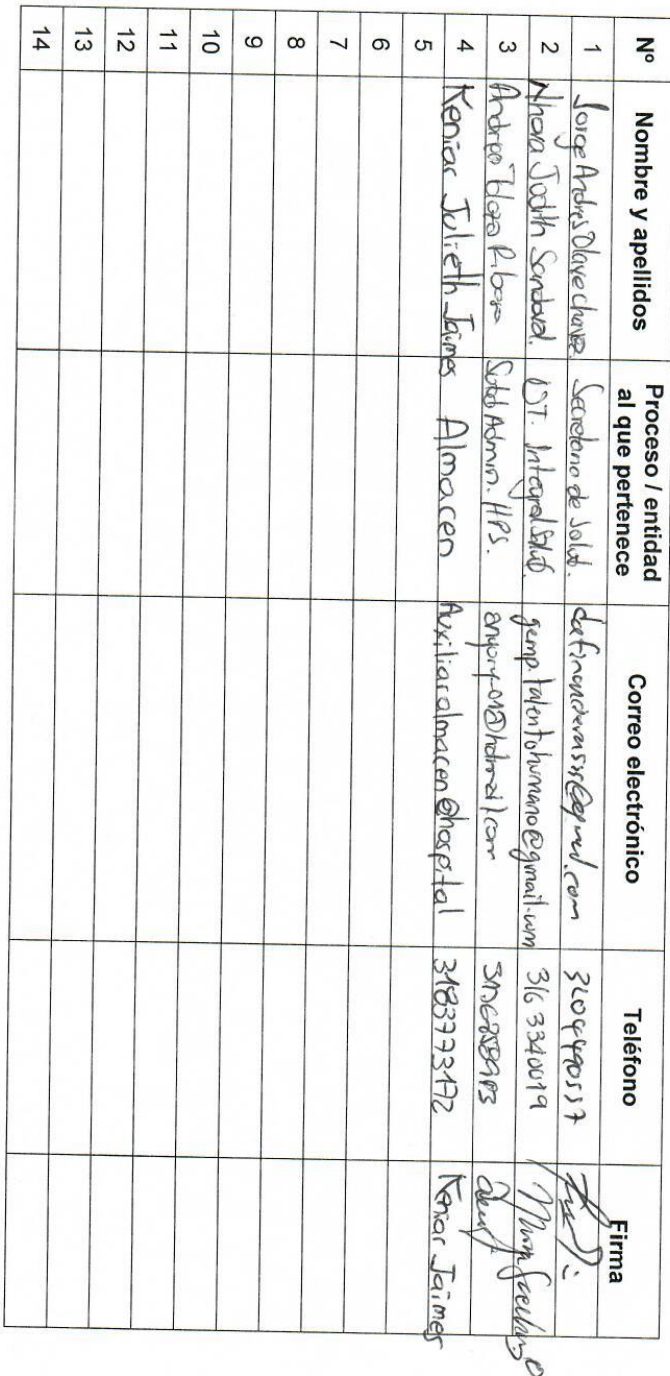 Nº Nombre y apellidos Proceso / entidad al que pertenece Correo electrónico Teléfono Firma
1 Jorge Andres Olave chavez. Secretario de Salud. 3204490557
2 Nhora Judith Sandoval. UT. Integral Salud. gemp.talentohumano@gmail.com 316 3340019
3 Andrea Admin. HPS.
4 Keniar Julieth Jaimes Almacen Auxiliaralmacen@hospital 3183773172 Keniar Jaimes
5
6
7
8
9
10
11
12
13
14